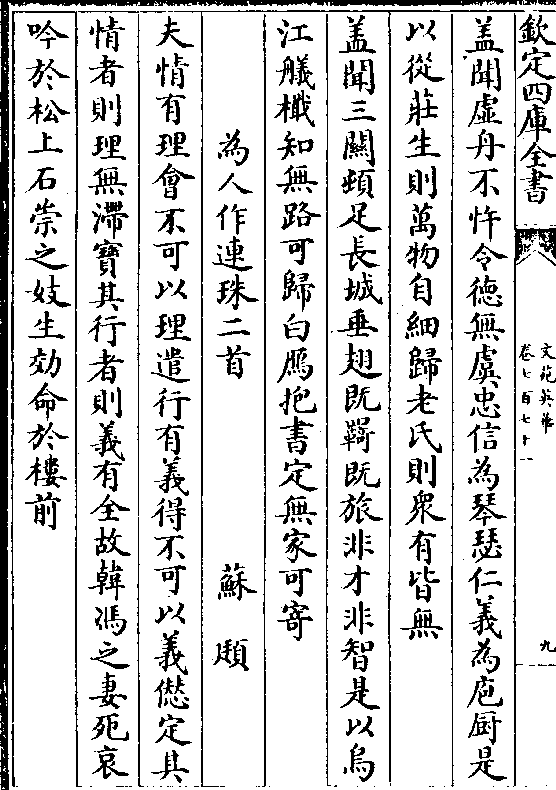 欽定四庫全書
文苑英華
卷七百七十一
九
蓋聞虛舟不忤令德無虞忠信為琴瑟仁義為庖厨是
以從莊生則萬物自細歸老氏則衆有皆無
蓋聞三關頓足長城垂翅既羇既旅非才非智是以烏
江艤檝知無路可歸白鴈抱書定無家可寄
為人作連珠二首 蘇頲
夫情有理會不可以理遣行有義得不可以義愆定其
情者則理無滯寶其行者則義有全故韓馮之妻死哀
吟於松上石崇之妓生効命於樓前